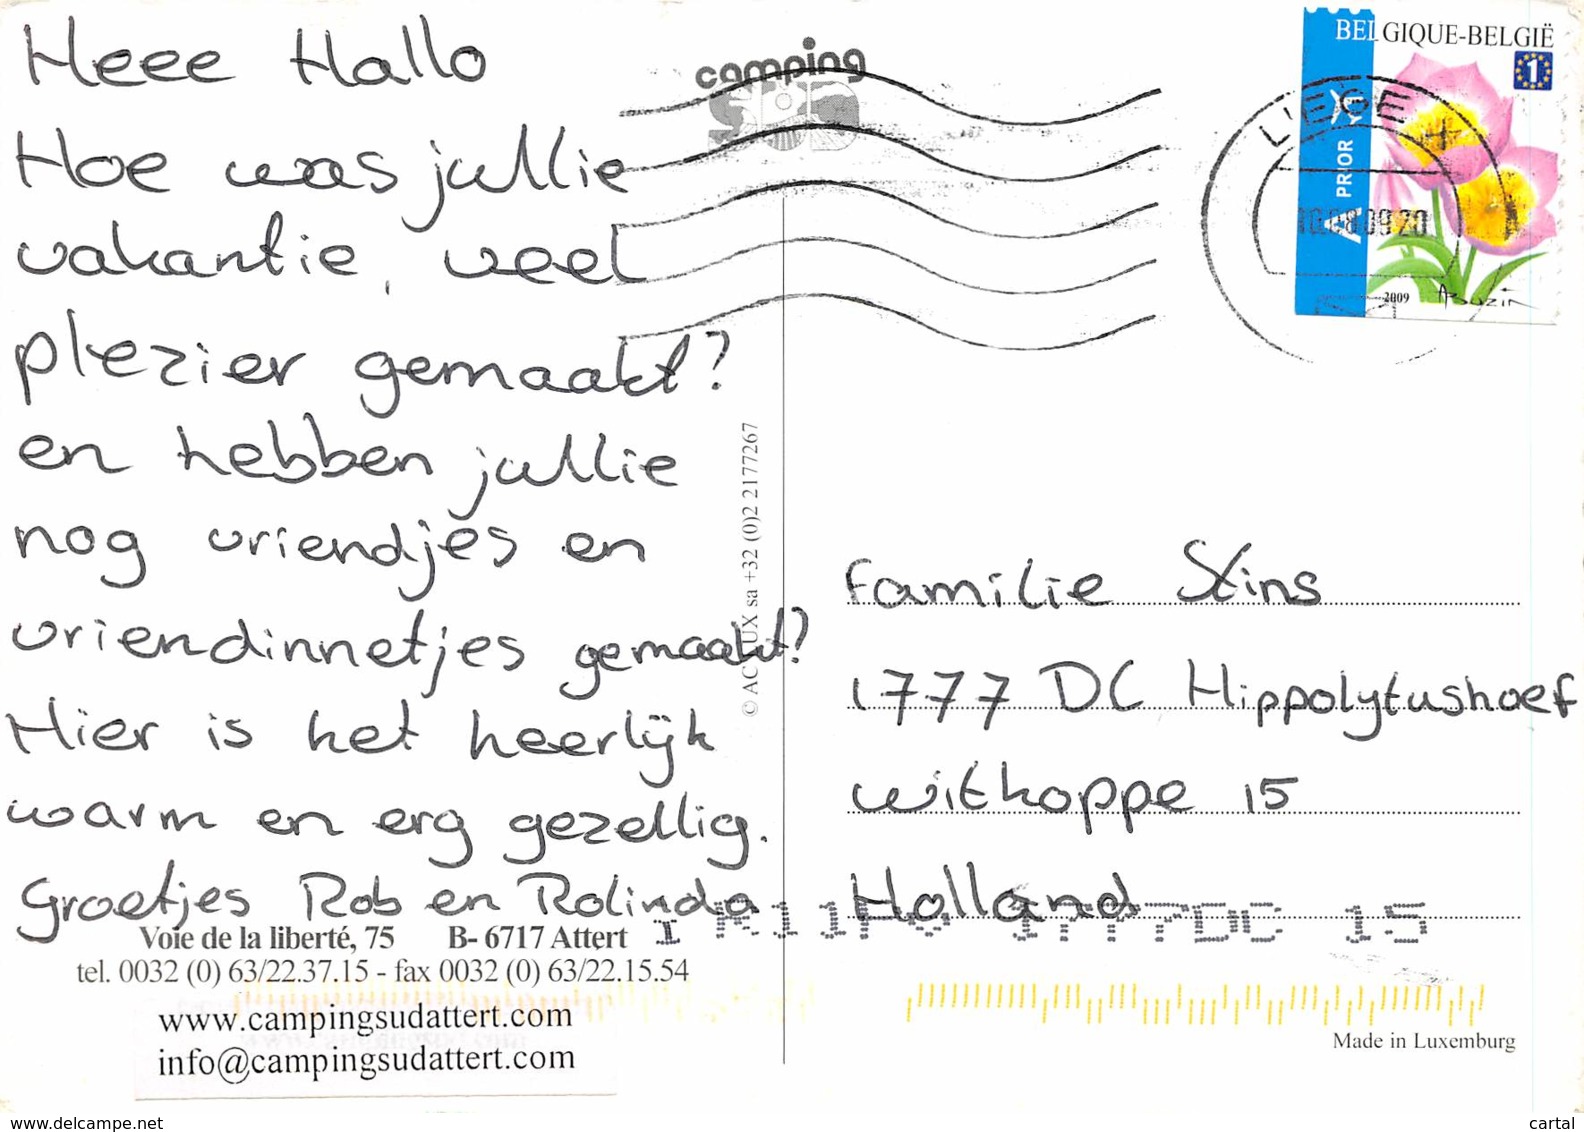 Heee Hallo
Hoe was jullie
vakantie, veel
plezier gemaakt?
en hebben jullie
nog vriendjes en
vriendinnetjes gemaakt?
Hier is het heerlijk
warm en erg gezellig.
Groetjes Rob en Rolinda
Voie de la liberté, 75 B- 6717 Attert
tel. 0032 (0) 63/22.37.15 - fax 0032 (0) 63/22.15.54
www.campingsudattert.com
info@campingsudattert.com
camping
SUD
+32 (0)2 2177267
BELGIQUE-BELGIË
1
A PRIOR
LIEGE X
10.08.09 20
2009
ABuzin
Familie Stins
1777 DC Hippolytushoef
Withoppe 15
Holland
1777DC 15
Made in Luxemburg
www.delcampe.net
cartal